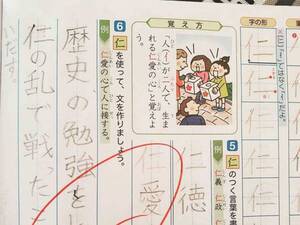 字の形
「二」ではなく「イ」だよ。
仁
仁
仁
5 仁のつく言葉を書
仁義 仁政
仁徳
仁愛
覚え方
「人(イ)が二人で、生ま
れる仁愛の心」と覚えよ
う。
6 仁を使って、文を作りましょう。
例 仁愛の心で人に接する。
歴史の勉強を
仁の乱で戦った